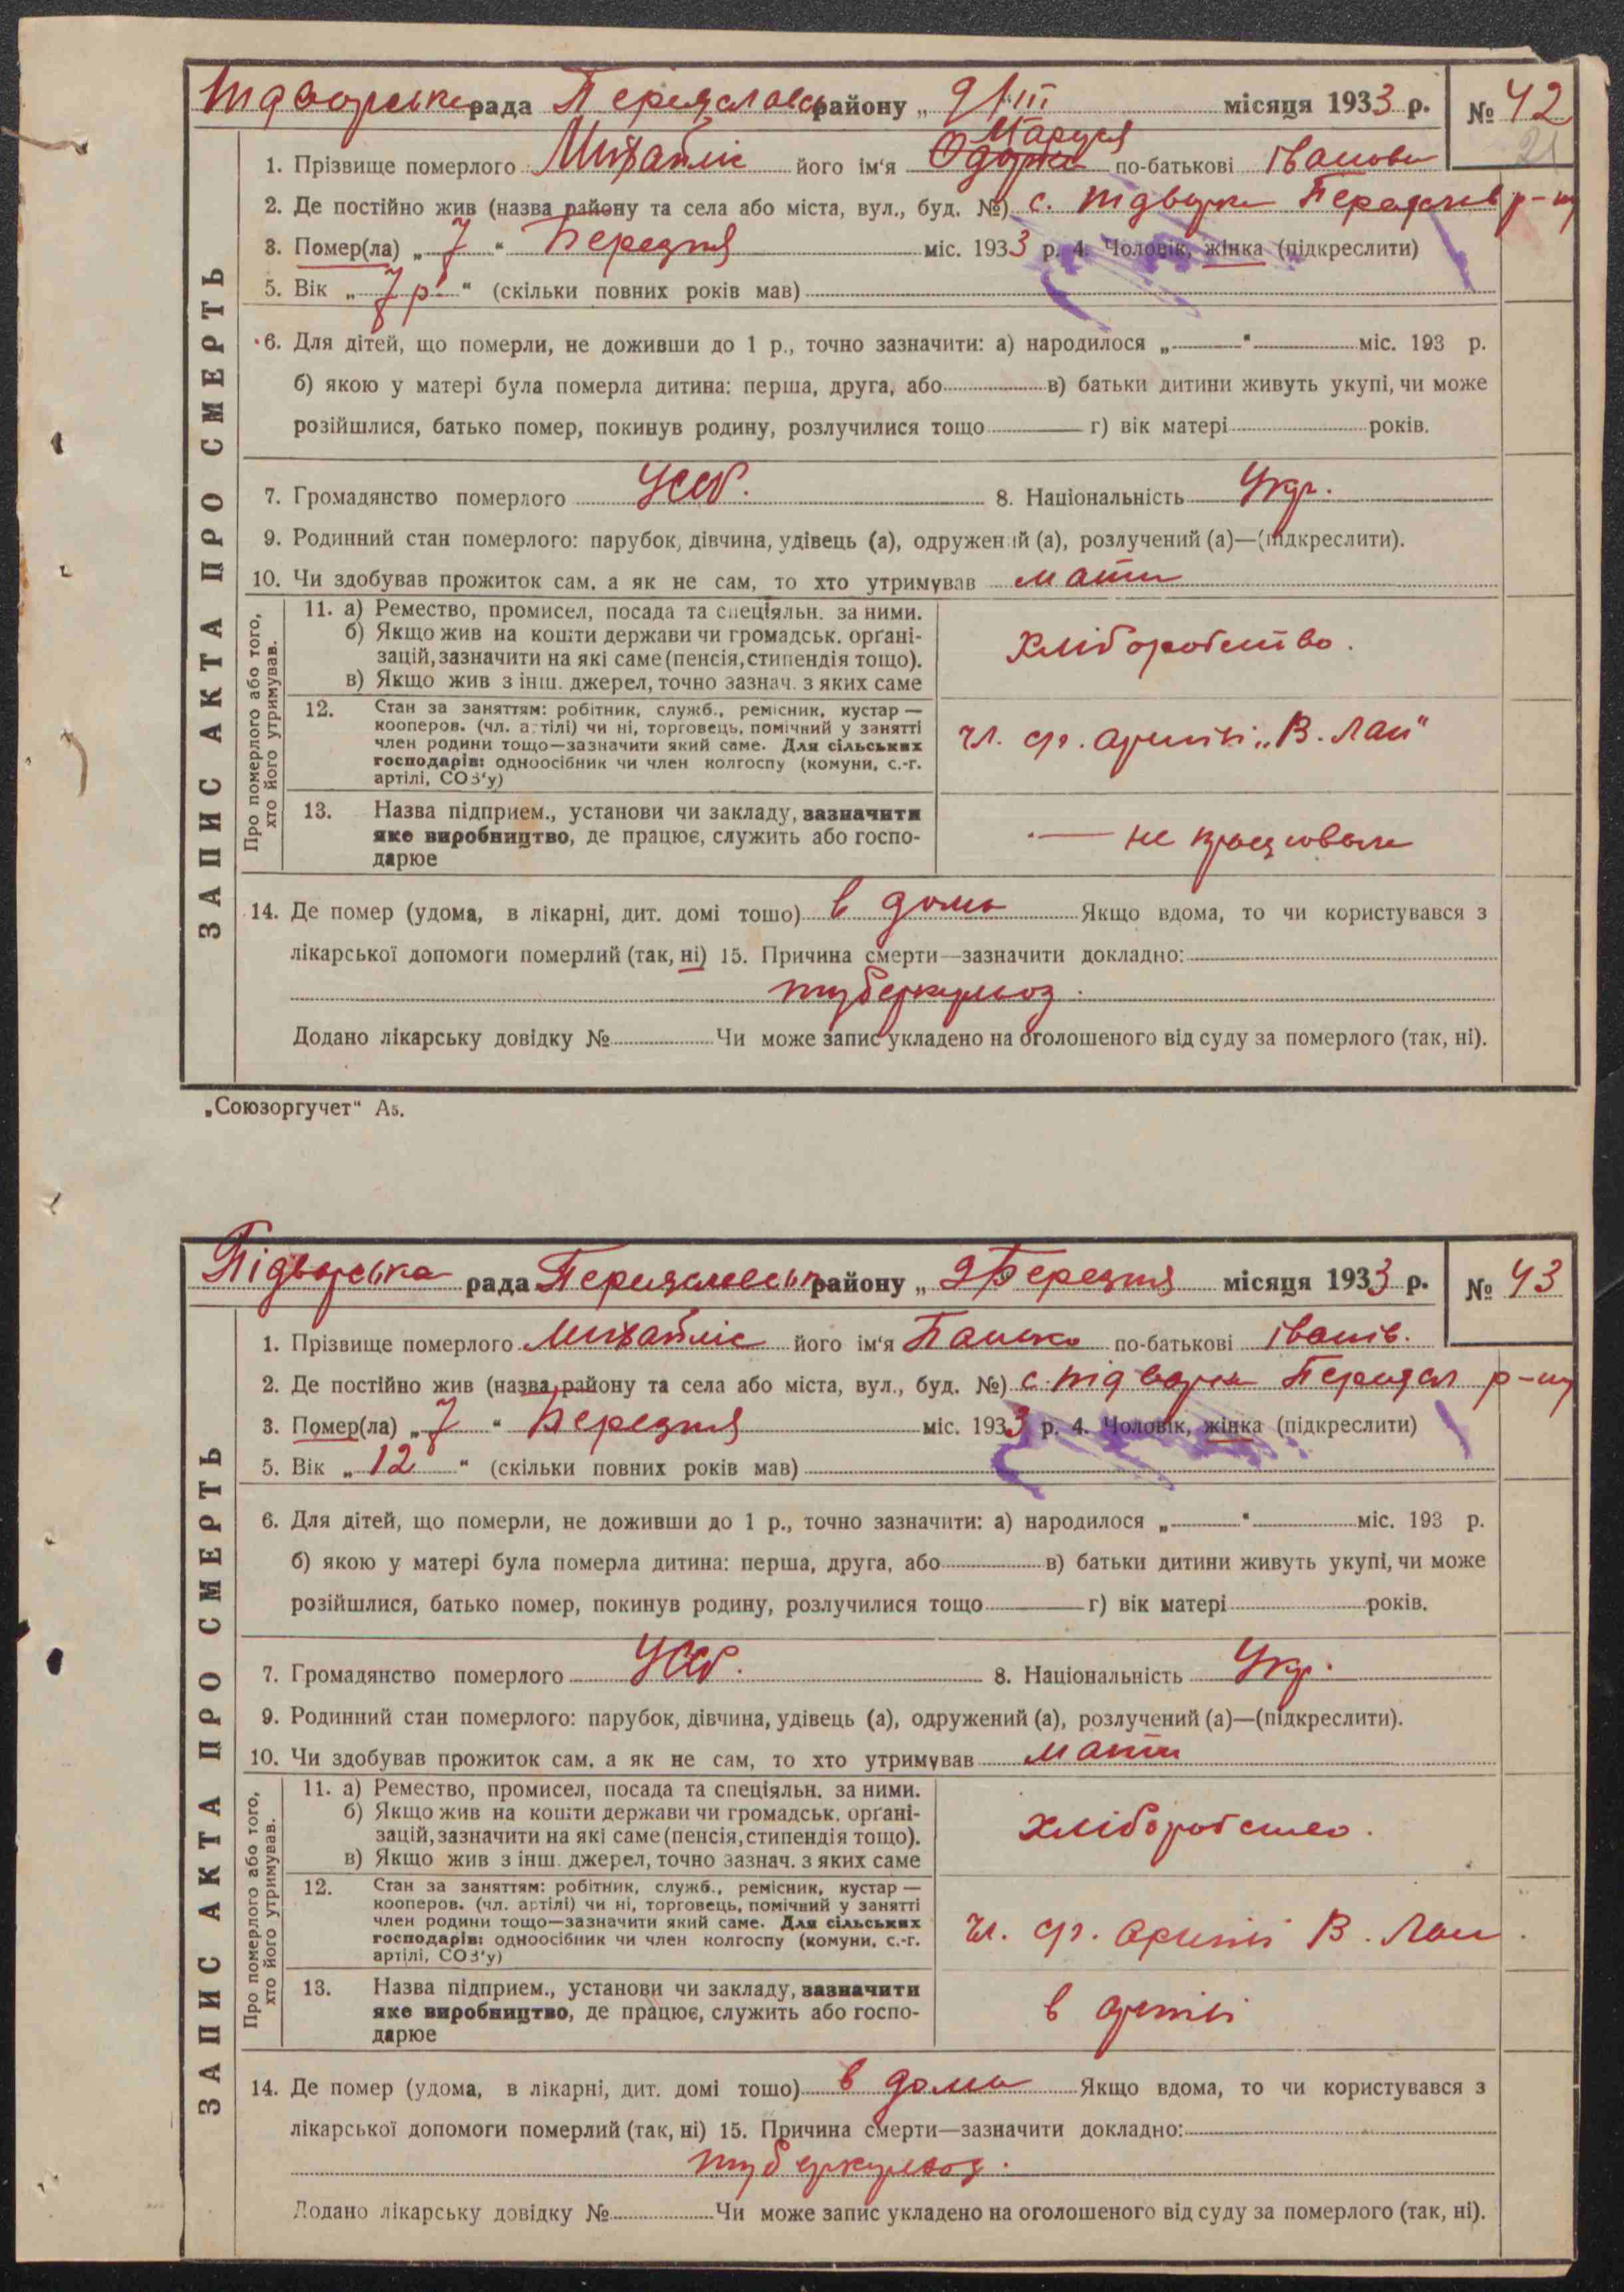 Підворська рада Переяславськ району „ 9/III місяця 1933 р. № 42
21
Маруся
1. Прізвище померлого Михайліс його ім‘я Одарка по-батькові Іванови
2. Де постійно жив (назва району та села або міста, вул., буд. №) с. Підворки Переяслав р-ну
3. Помер(ла) „ 7 “ Березня міс. 1933 р. 4. Чоловік, жінка (підкреслити)
5. Вік „ 7 р. “ (скільки повних років мав)
6. Для дітей, що померли, не доживши до 1 р., точно зазначити: а) народилося „ “ міс. 193 р.
б) якою у матері була померла дитина: перша, друга, або в) батьки дитини живуть укупі, чи може
розійшлися, батько помер, покинув родину, розлучилися тощо г) вік матері років.
7. Громадянство померлого УССР. 8. Національність Укр.
9. Родинний стан померлого: парубок, дівчина, удівець (а), одружений (а), розлучений (а)—(підкреслити).
10. Чи здобував прожиток сам, а як не сам, то хто утримував мати
ЗАПИС АКТА ПРО СМЕРТЬ
Про померлого або того,
хто його утримував.
11. а) Ремество, промисел, посада та спеціяльн. за ними.
б) Якщо жив на кошти держави чи громадськ. орґані-
зацій, зазначити на які саме (пенсія, стипендія тощо).
в) Якщо жив з інш. джерел, точно зазнач. з яких саме
Хліборобство.
12. Стан за заняттям: робітник, служб., ремісник, кустар —
кооперов. (чл. артілі) чи ні, торговець, помічний у занятті
член родини тощо—зазначити який саме. Для сільських
господарів: одноосібник чи член колгоспу (комуни, с.-г.
артілі, СОЗ‘у)
чл. ср. артілі „В. Лан“
13. Назва підприєм., установи чи закладу, зазначити
яке виробництво, де працює, служить або госпо-
дарює
— не працювала
14. Де помер (удома, в лікарні, дит. домі тощо) в дома Якщо вдома, то чи користувався з
лікарської допомоги померлий (так, ні) 15. Причина смерти—зазначити докладно:
туберкульоз.
Додано лікарську довідку № Чи може запис укладено на оголошеного від суду за померлого (так, ні).
„Союзоргучет“ А5.
Підворська рада Переяславськ району „ 9 Березня місяця 1933 р. № 43
1. Прізвище померлого Михайліс його ім‘я Панько по-батькові Іванів.
2. Де постійно жив (назва району та села або міста, вул., буд. №) с. Підворки Переясл р-ну
3. Помер(ла) „ 7 “ Березня міс. 1933 р. 4. Чоловік, жінка (підкреслити)
5. Вік „ 12 “ (скільки повних років мав)
6. Для дітей, що померли, не доживши до 1 р., точно зазначити: а) народилося „ “ міс. 193 р.
б) якою у матері була померла дитина: перша, друга, або в) батьки дитини живуть укупі, чи може
розійшлися, батько помер, покинув родину, розлучилися тощо г) вік матері років.
7. Громадянство померлого УССР. 8. Національність Укр.
9. Родинний стан померлого: парубок, дівчина, удівець (а), одружений (а), розлучений (а)—(підкреслити).
10. Чи здобував прожиток сам, а як не сам, то хто утримував мати
ЗАПИС АКТА ПРО СМЕРТЬ
Про померлого або того,
хто його утримував.
11. а) Ремество, промисел, посада та спеціяльн. за ними.
б) Якщо жив на кошти держави чи громадськ. орґані-
зацій, зазначити на які саме (пенсія, стипендія тощо).
в) Якщо жив з інш. джерел, точно зазнач. з яких саме
хліборобство.
12. Стан за заняттям: робітник, служб., ремісник, кустар —
кооперов. (чл. артілі) чи ні, торговець, помічний у занятті
член родини тощо—зазначити який саме. Для сільських
господарів: одноосібник чи член колгоспу (комуни, с.-г.
артілі, СОЗ‘у)
чл. ср. артілі В. Лан.
13. Назва підприєм., установи чи закладу, зазначити
яке виробництво, де працює, служить або госпо-
дарює
в артілі
14. Де помер (удома, в лікарні, дит. домі тощо) в дома Якщо вдома, то чи користувався з
лікарської допомоги померлий (так, ні) 15. Причина смерти—зазначити докладно:
туберкульоз.
Додано лікарську довідку № Чи може запис укладено на оголошеного від суду за померлого (так, ні).